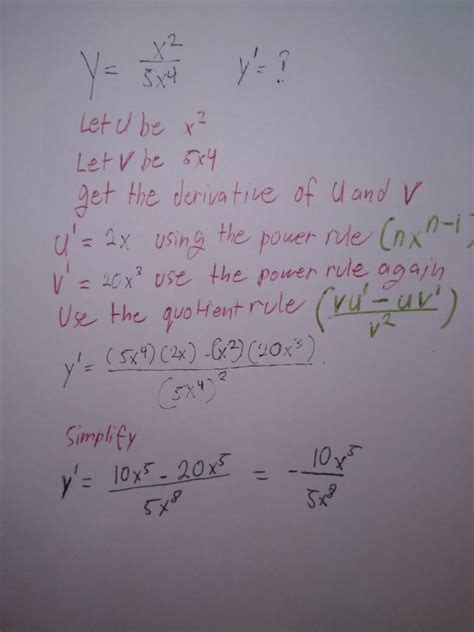 y = x²/5x⁴   y' = ?
Let U be x²
Let V be 5x4
get the derivative of U and V
U' = 2x using the power rule (nxⁿ⁻¹)
V' = 20x³ use the power rule again
Use the quotient rule (vu' - uv'/v²)
y' = (5x⁴)(2x) - (x²)(20x³)/(5x⁴)²
Simplify
y' = 10x⁵ - 20x⁵/5x⁸ = - 10x⁵/5x⁸